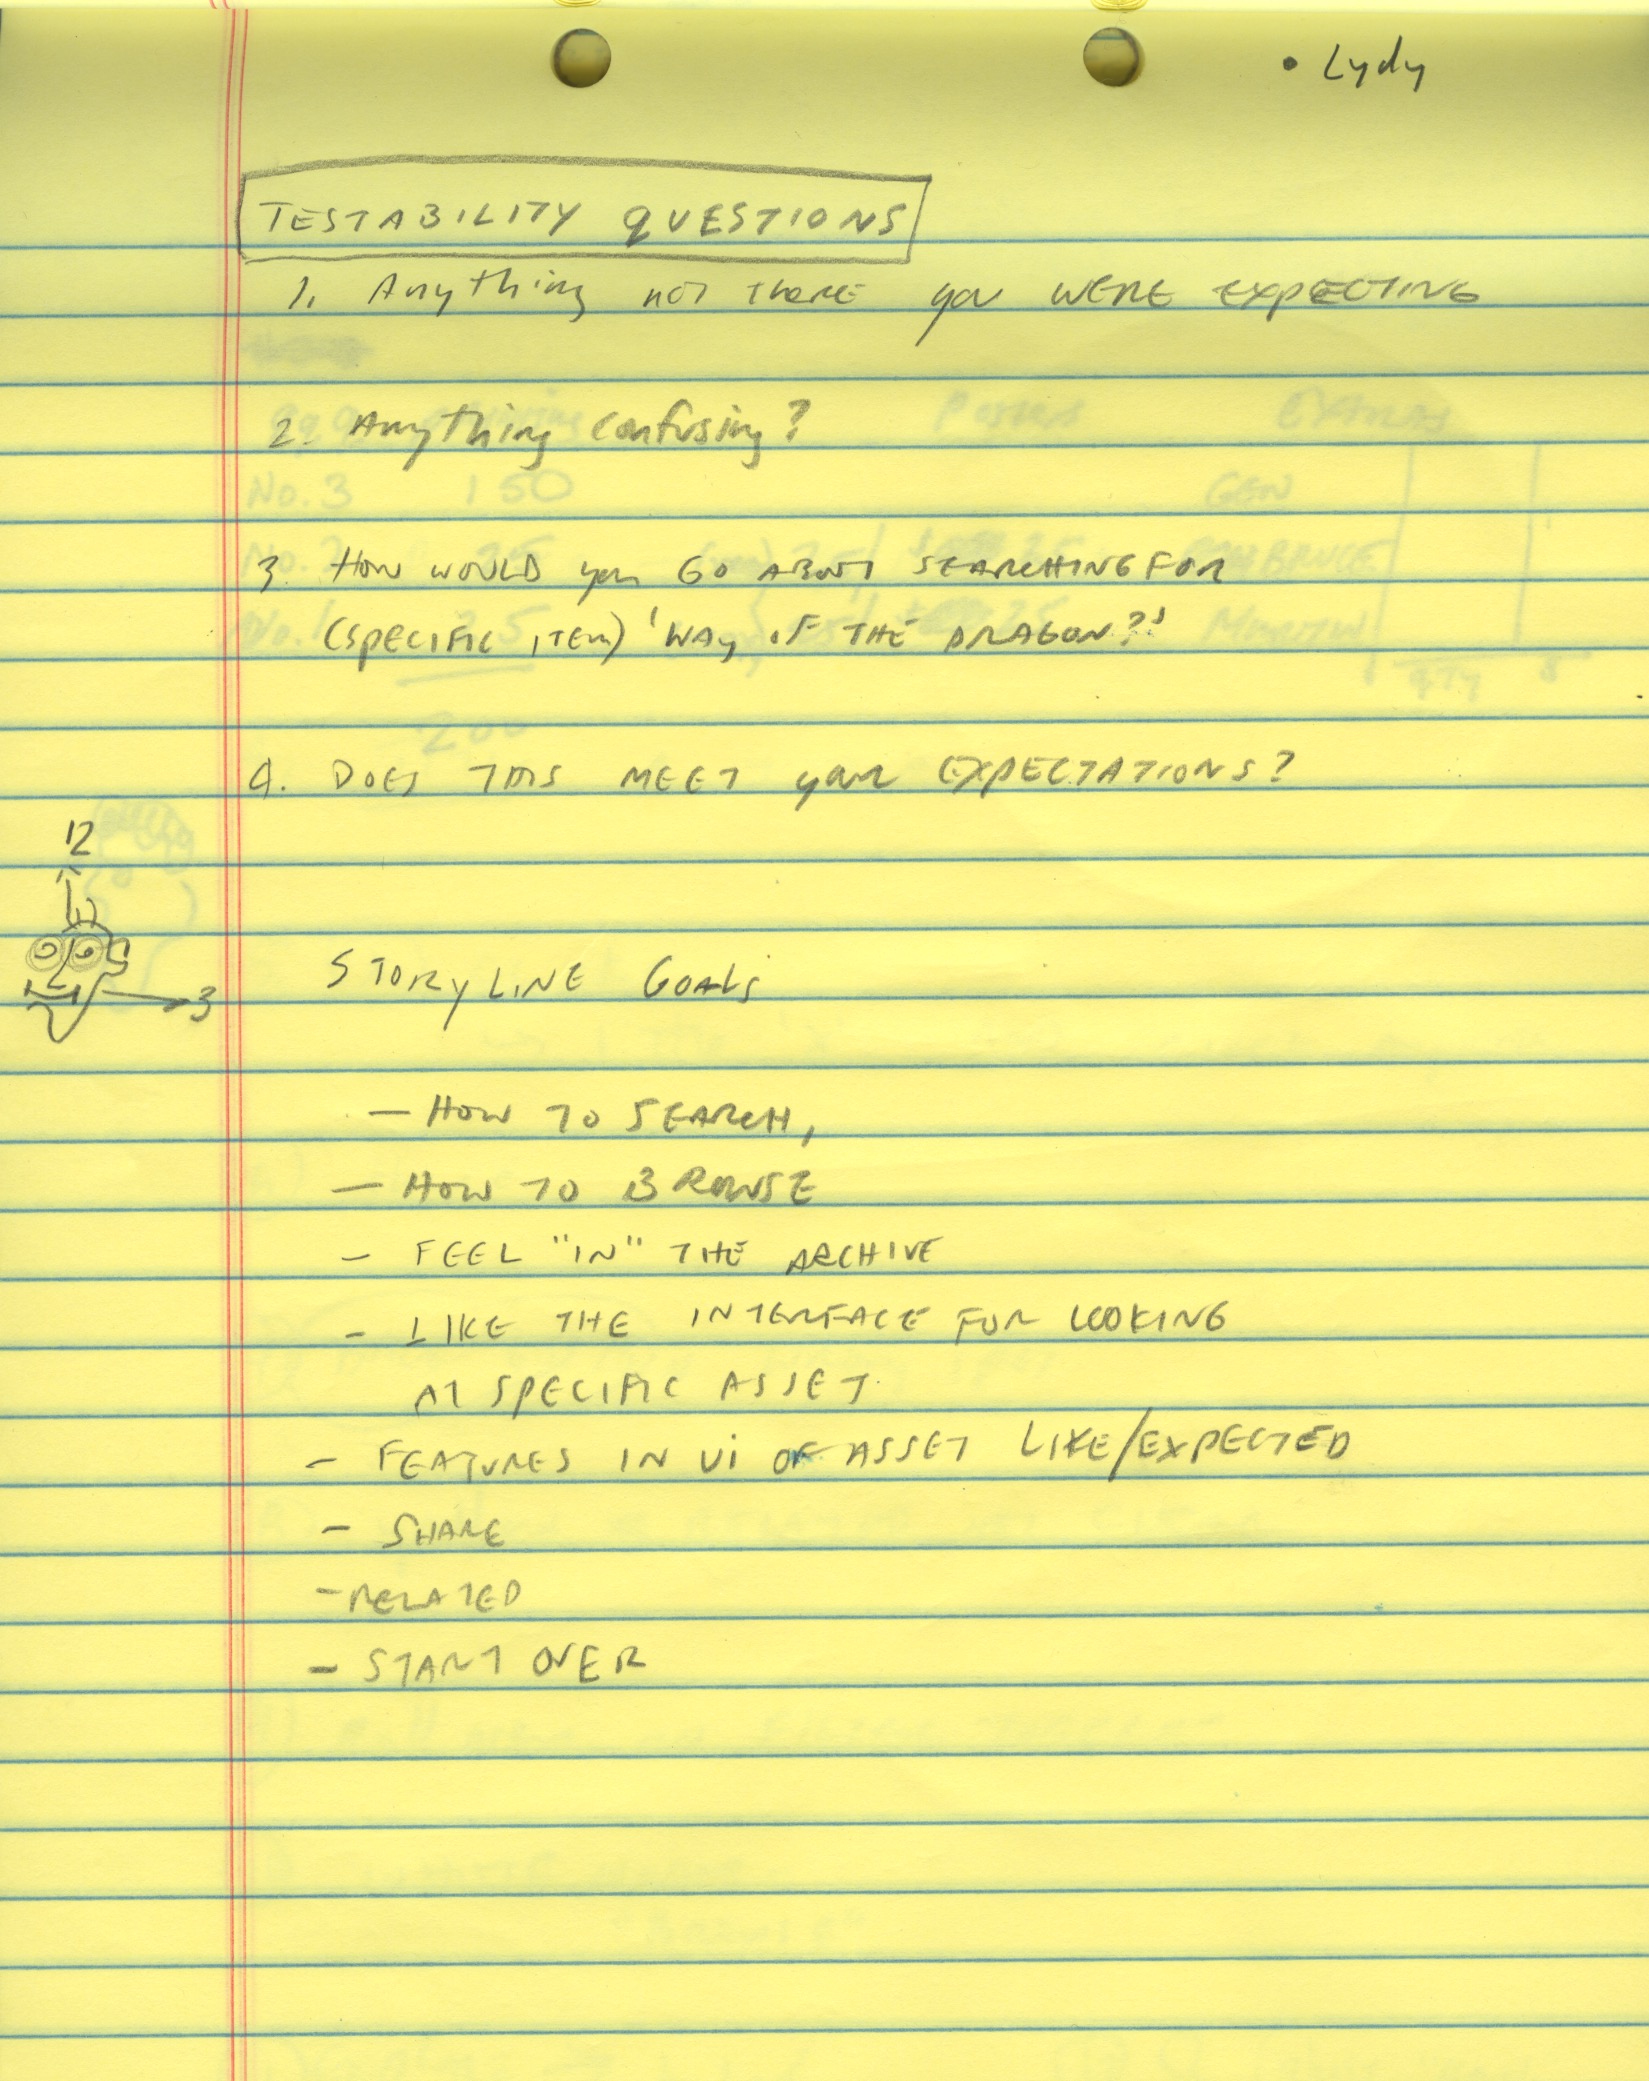 • Lydy
TESTABILITY QUESTIONS
1. Anything not there you were expecting
2. Anything confusing?
3. How would you go about searching for
(specific item) 'Way of the Dragon?'
4. Does this meet your expectations?
12
3
Storyline Goals
- How to search,
- How to browse
- Feel "in" the archive
- Like the interface for looking
at specific asset.
- Features in UI of asset like/expected
- Share
- Related
- Start over
No. 3 150
200